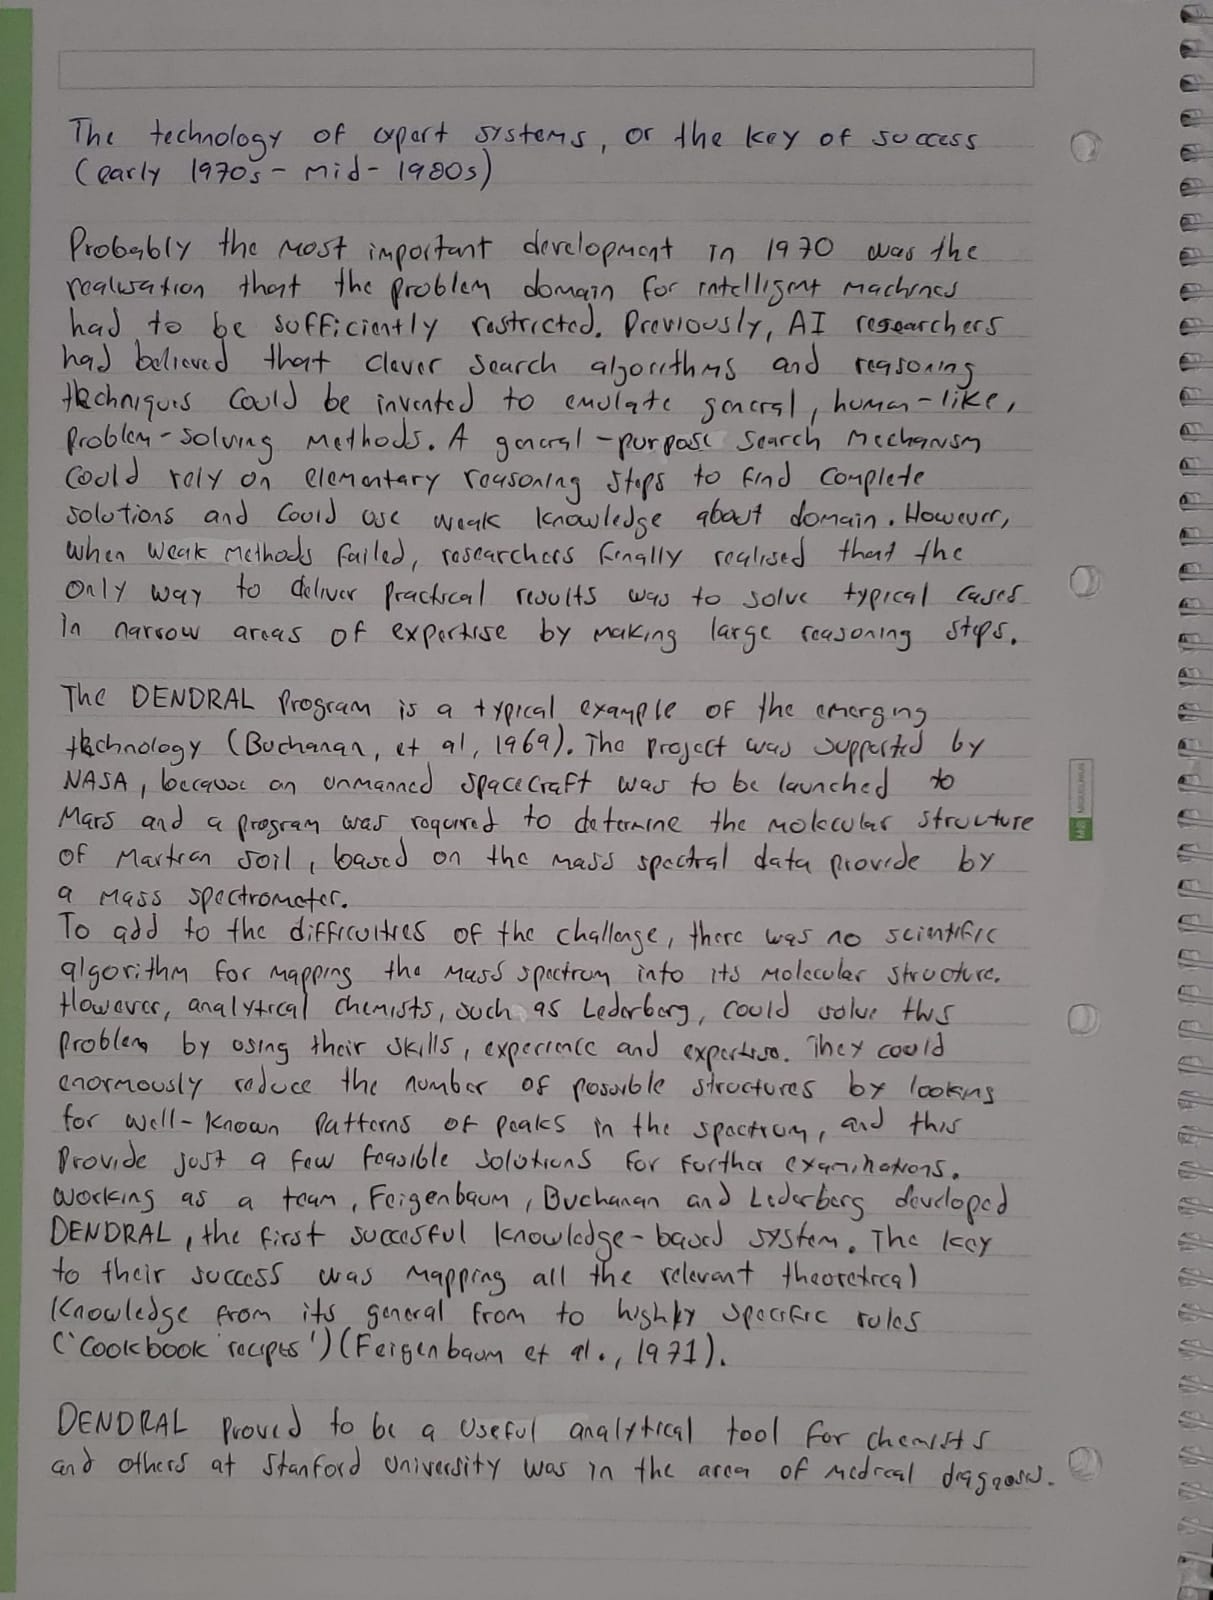 The technology of expert systems, or the key of success
(early 1970s - mid - 1980s)
Probably the most important development in 1970 was the
realisation that the problem domain for intelligent machines
had to be sufficiently restricted. Previously, AI researchers
had believed that clever search algorithms and reasoning
techniques could be invented to emulate general, human-like,
problem-solving methods. A general-purpose search mechanism
could rely on elementary reasoning steps to find complete
solutions and could use weak knowledge about domain. However,
when weak methods failed, researchers finally realised that the
only way to deliver practical results was to solve typical cases
in narrow areas of expertise by making large reasoning steps.
The DENDRAL program is a typical example of the emerging
technology (Buchanan, et al, 1969). The project was supported by
NASA, because an unmanned spacecraft was to be launched to
Mars and a program was required to determine the molecular structure
of Martian soil, based on the mass spectral data provide by
a mass spectrometer.
To add to the difficulties of the challenge, there was no scientific
algorithm for mapping the mass spectrum into its molecular structure.
However, analytical chemists, such as Lederberg, could solve this
problem by using their skills, experience and expertise. They could
enormously reduce the number of possible structures by looking
for well-known patterns of peaks in the spectrum, and this
provide just a few feasible solutions for further examinations.
Working as a team, Feigenbaum, Buchanan and Lederberg developed
DENDRAL, the first succesful knowledge-based system. The key
to their success was mapping all the relevant theoretical
knowledge from its general from to highly specific rules
('Cookbook recipes') (Feigenbaum et al., 1971).
DENDRAL proved to be a useful analytical tool for chemists
and others at Stanford University was in the area of medical diagnosis.